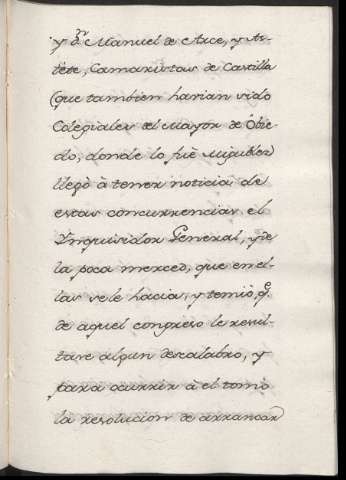 y Dn. Manuel de Arce, y As-
tête, Camaristas de Castilla
(que tambien havian sido
Colegiales del Mayor de Óbie-
do, donde lo fuè Miguélez)
llegò à tener noticia de
estas concurrencias el
Ynquisidor General, y de
la poca merced, que en e-
llas se le hacia, y temiò, q.e
de aquel congreso le resul-
tase algun descalabro, y
para ocurrir à el tomò
la resolucion de arrancar